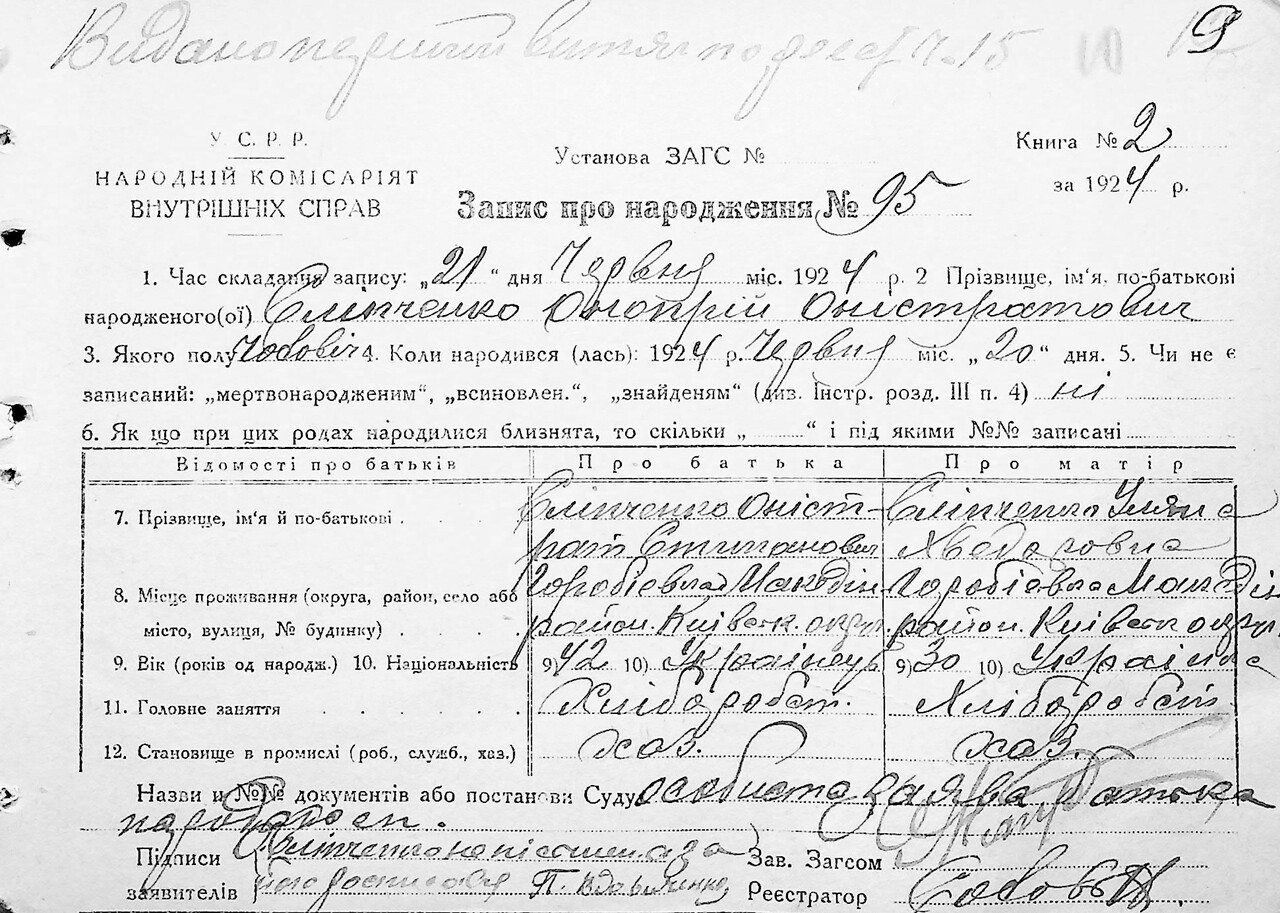 Видано перший витяг по реєст. Ч. 15 10 9
У. С. Р. Р.
НАРОДНІЙ КОМІСАРІЯТ
ВНУТРІШНІХ СПРАВ
Установа ЗАГС №
Книга № 2
за 1924 р.
Запис про народження № 95
1. Час складання запису: „21“ дня Червня міс. 1924 р. 2 Прізвище, ім'я, по-батькові
народженого(ої) Сліпченко Онопрій Оністратович
3. Якого полу Чоловіч 4. Коли народився (лась): 1924 р. Червня міс. „20“ дня. 5. Чи не є
записаний: „мертвонародженим“, „всиновлен.“, „знайденям“ (див. Інстр. розд. III п. 4) ні
6. Як що при цих родах народилися близнята, то скільки „ “ і під якими №№ записані
Відомості про батьків Про батька Про матір
7. Прізвище, ім'я й по-батькові Сліпченко Оніст-рат Степанович Сліпченко Уляна Хведоровна
8. Місце проживання (округа, район, село або
місто, вулиця, № будинку) район. Київськ. округ. район. Київськ округ.
9. Вік (років од народж.) 10. Національність 9) 42 10) Українець 9) 30 10) Українка
11. Головне заняття Хліборобст. Хліборобст.
12. Становище в промислі (роб., служб., хаз.) хаз. хаз.
Назви и №№ документів або постанови Суду особиста заява батька
Підписи Сліпченко неписьмен а за
заявителів його росписався П. Зав. Загсом
Реєстратор